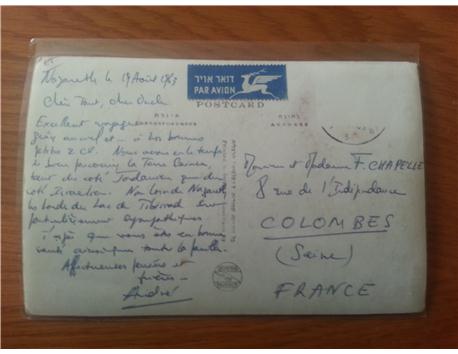 Nazareth le 19 Août 1963
Chère Tante, cher Oncle
Excellent voyage
grâce au ciel et ... à la bonne
petite 2 CV. Nous avons eu le temps
de bien parcourir la Terre Sainte,
tant du côté Jordanien que du
côté Israélien. Non loin de Nazareth
les bords du Lac de Tibériade sont
particulièrement sympathiques
J'espère que vous êtes en bonne
santé ainsi que toute la famille.
Affectueuses pensées et
prières.
André
דואר אויר
PAR AVION
POSTCARD
Monsieur et Madame F. CHAPELLE
8 rue de l'Indépendance
COLOMBES
(Seine)
FRANCE